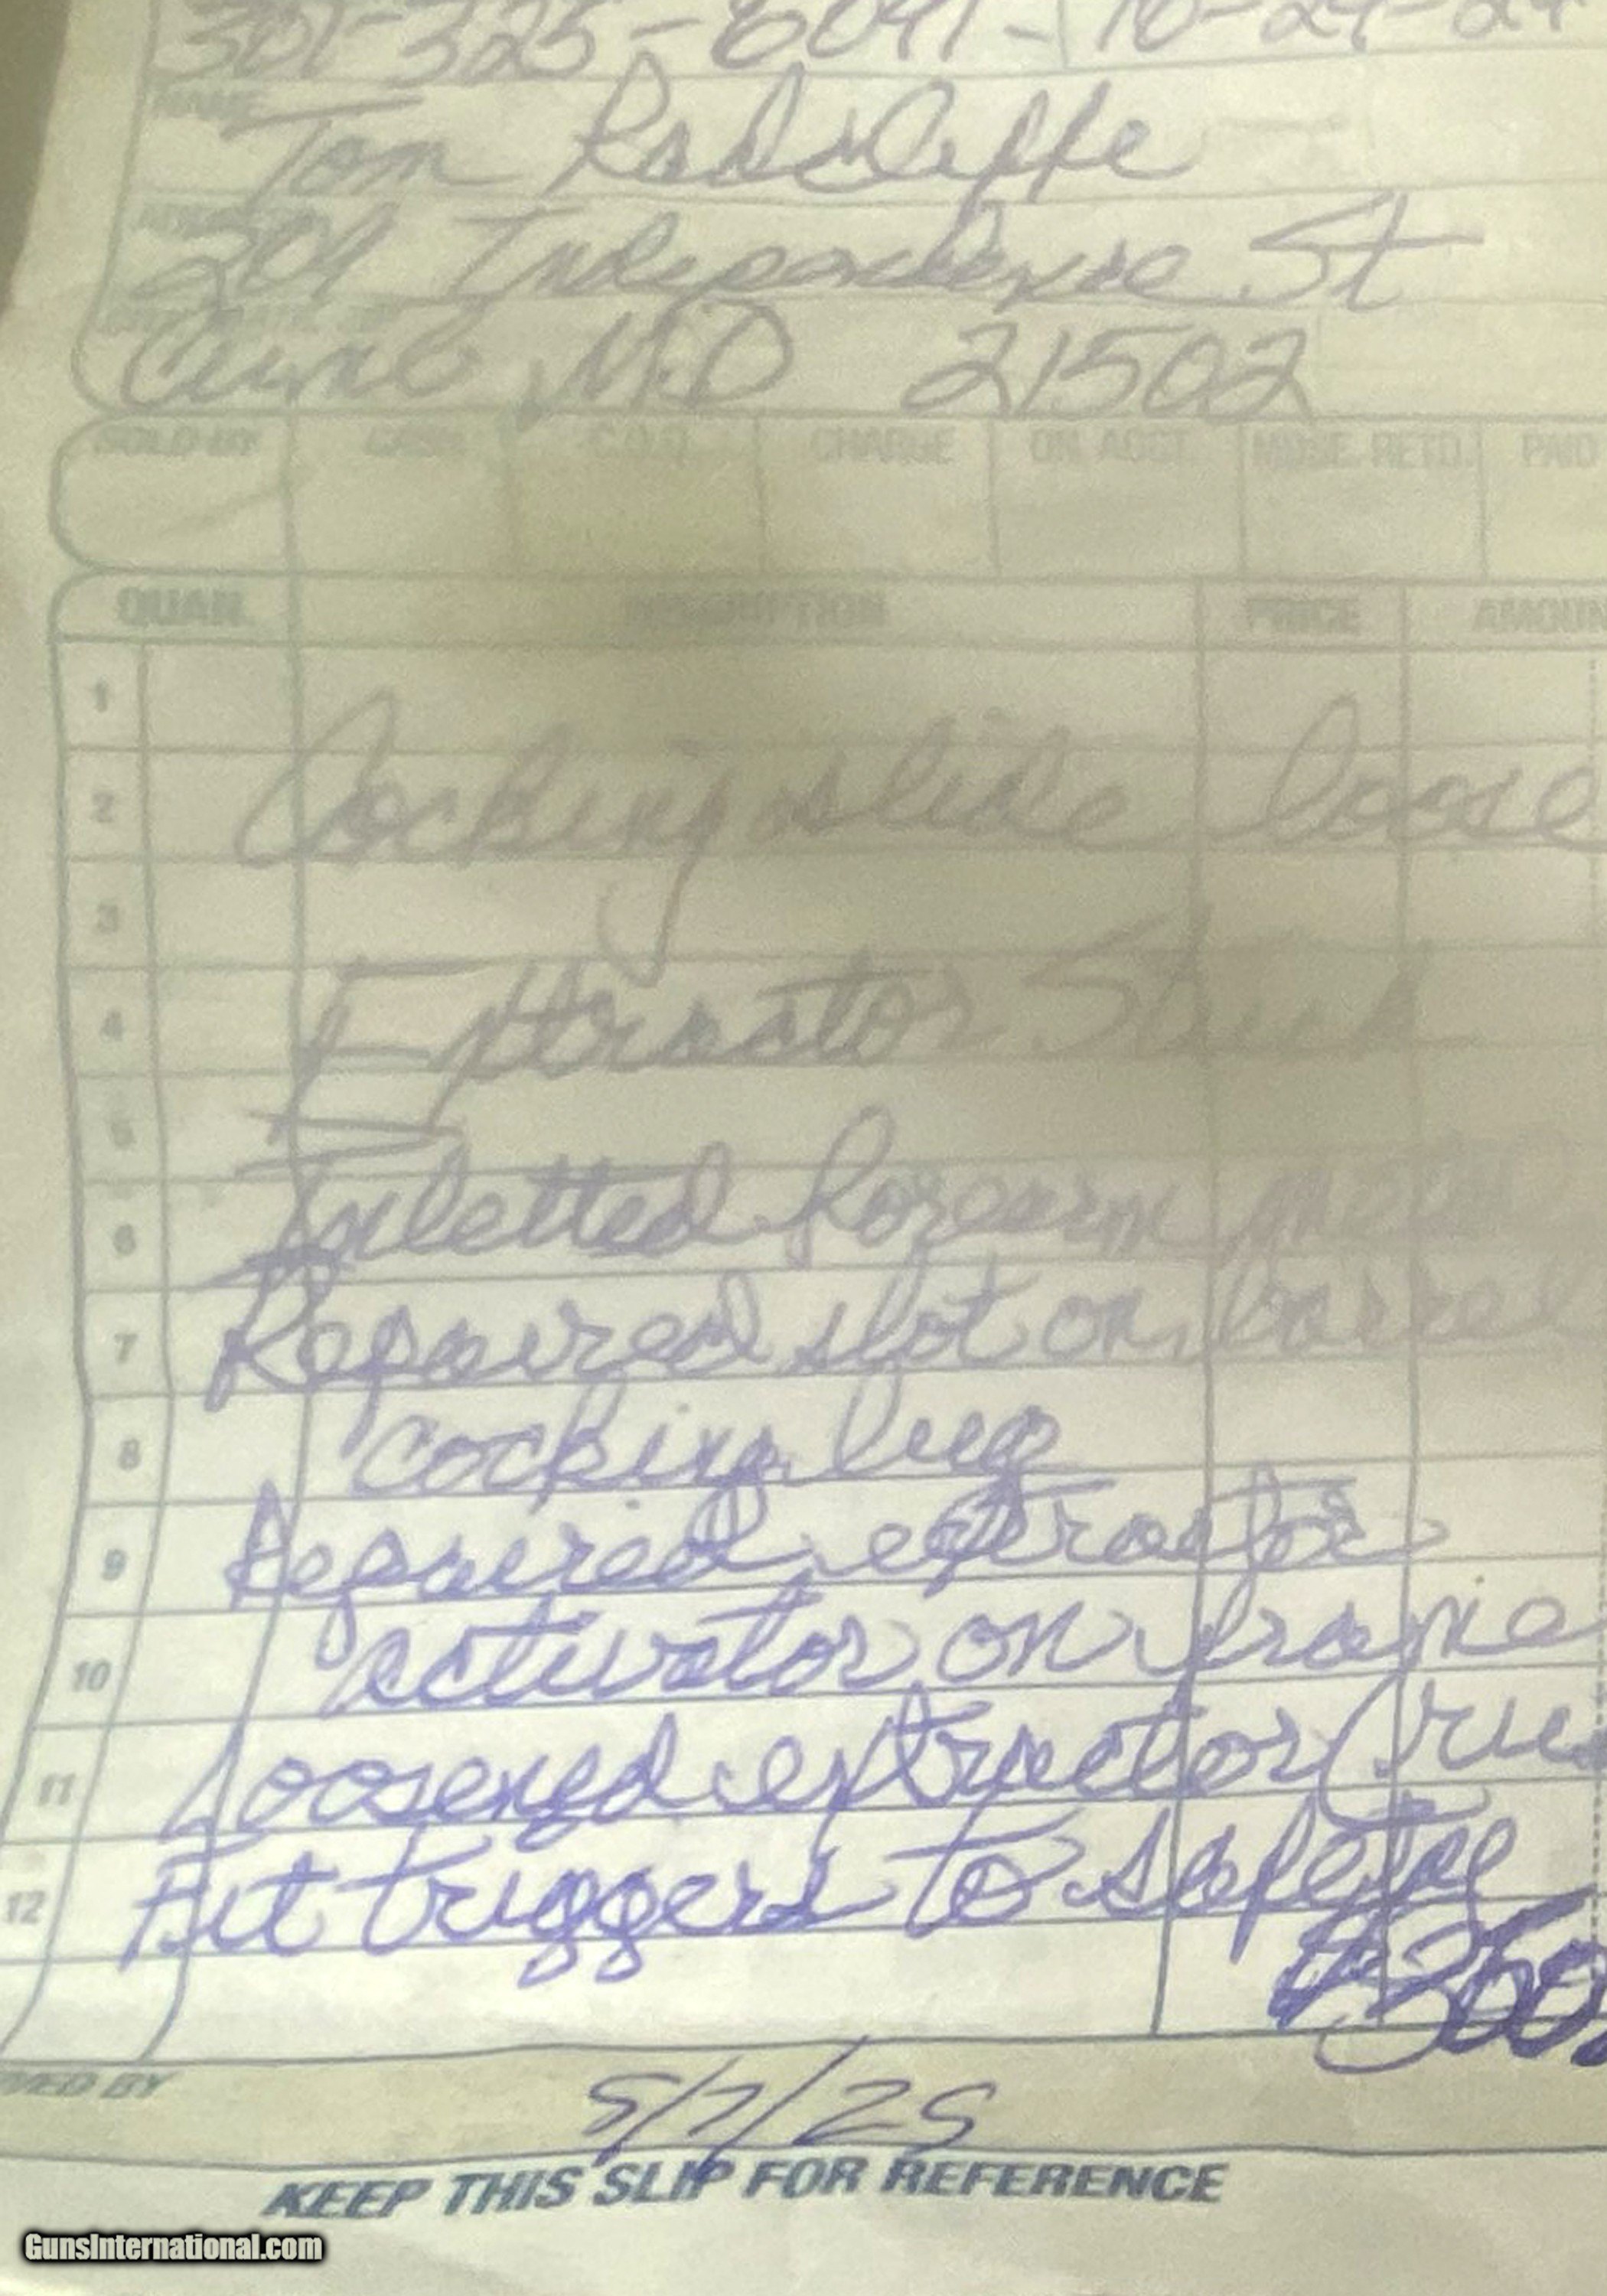 301-325-6091- 10-29-24
NAME
Tom Radcliffe
ADDRESS
209 Independence St
MD 21502
SOLD BY CASH C.O.D. CHARGE ON ACCT. MDSE. RETD. PAID
QUAN. DESCRIPTION PRICE AMOUN
1
2 Cocking slide loose
3
4 Extractor Stuck
5
6 Inletted forearm metal
7 Repaired slot on barrel
8 cocking lug
9 Repaired extractor
10 activator on frame
11 Loosened extractor
12 Fit triggers to safety
$360
5/7/25
KEEP THIS SLIP FOR REFERENCE
GunsInternational.com